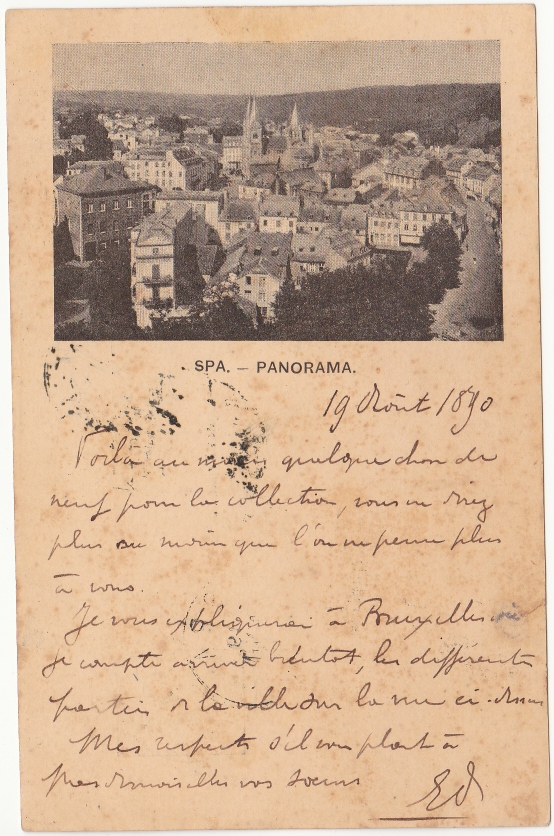 SPA. — PANORAMA.
19 Août 1890
Voilà au moins quelque chose de
neuf pour la collection, vous ne direz
plus au moins que l'on ne pense plus
à vous.
Je vous expliquerai à Bruxelles où
je compte arriver bientôt, les différentes
parties de la ville sur la vue ci-dessus
Mes respects s'il vous plait à
Mesdemoiselles vos soeurs
Ed